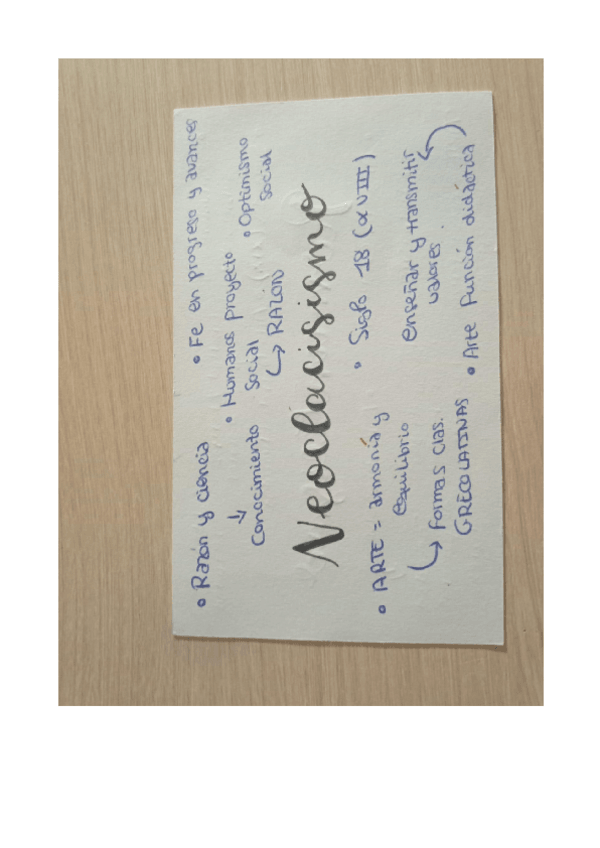 • Razón y ciencia
↓
Conocimiento
• Fe en progreso y avances
• Humanos proyecto
social
↳ RAZÓN
• Optimismo
social
Neoclacisismo
• ARTE = armonía y
equilibrio
↳ Formas clas.
GRECOLATINAS
• Siglo 18 (XVIII)
enseñar y transmitir
valores.
• Arte Función didáctica